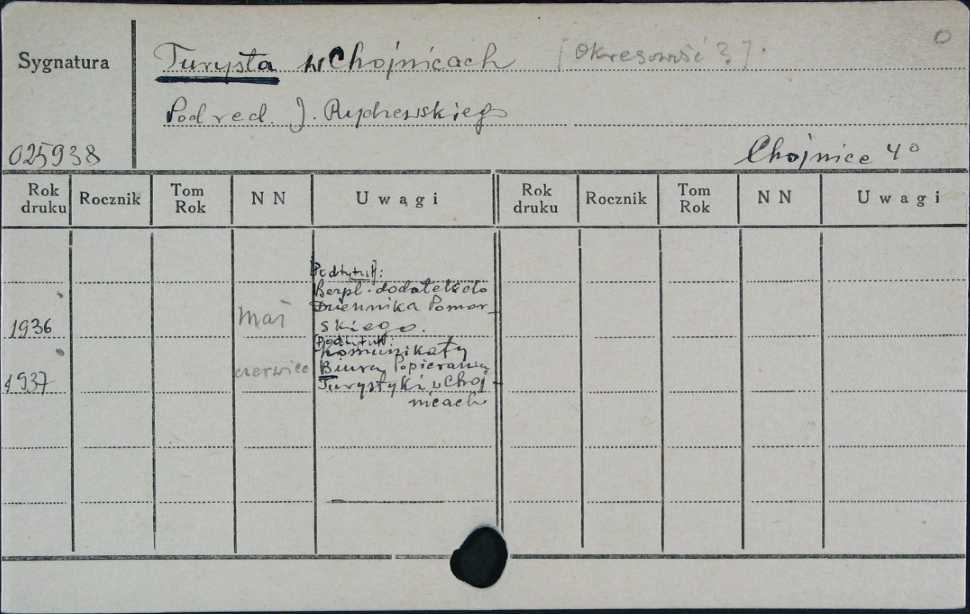 0
Sygnatura
Turysta w Chojnicach [Okresowość?].
Pod red. J. Rydzewskiego
025938
Chojnice 4°
Rok druku Rocznik Tom Rok NN Uwagi Rok druku Rocznik Tom Rok NN Uwagi
Podtytuł:
Bezpł. dodatek do
Dziennika Pomor-
1936 Maj skiego.
Podtytuł:
Komunikaty
czerwiec Biura Popierania
1937 Turystyki w Choj-
nicach